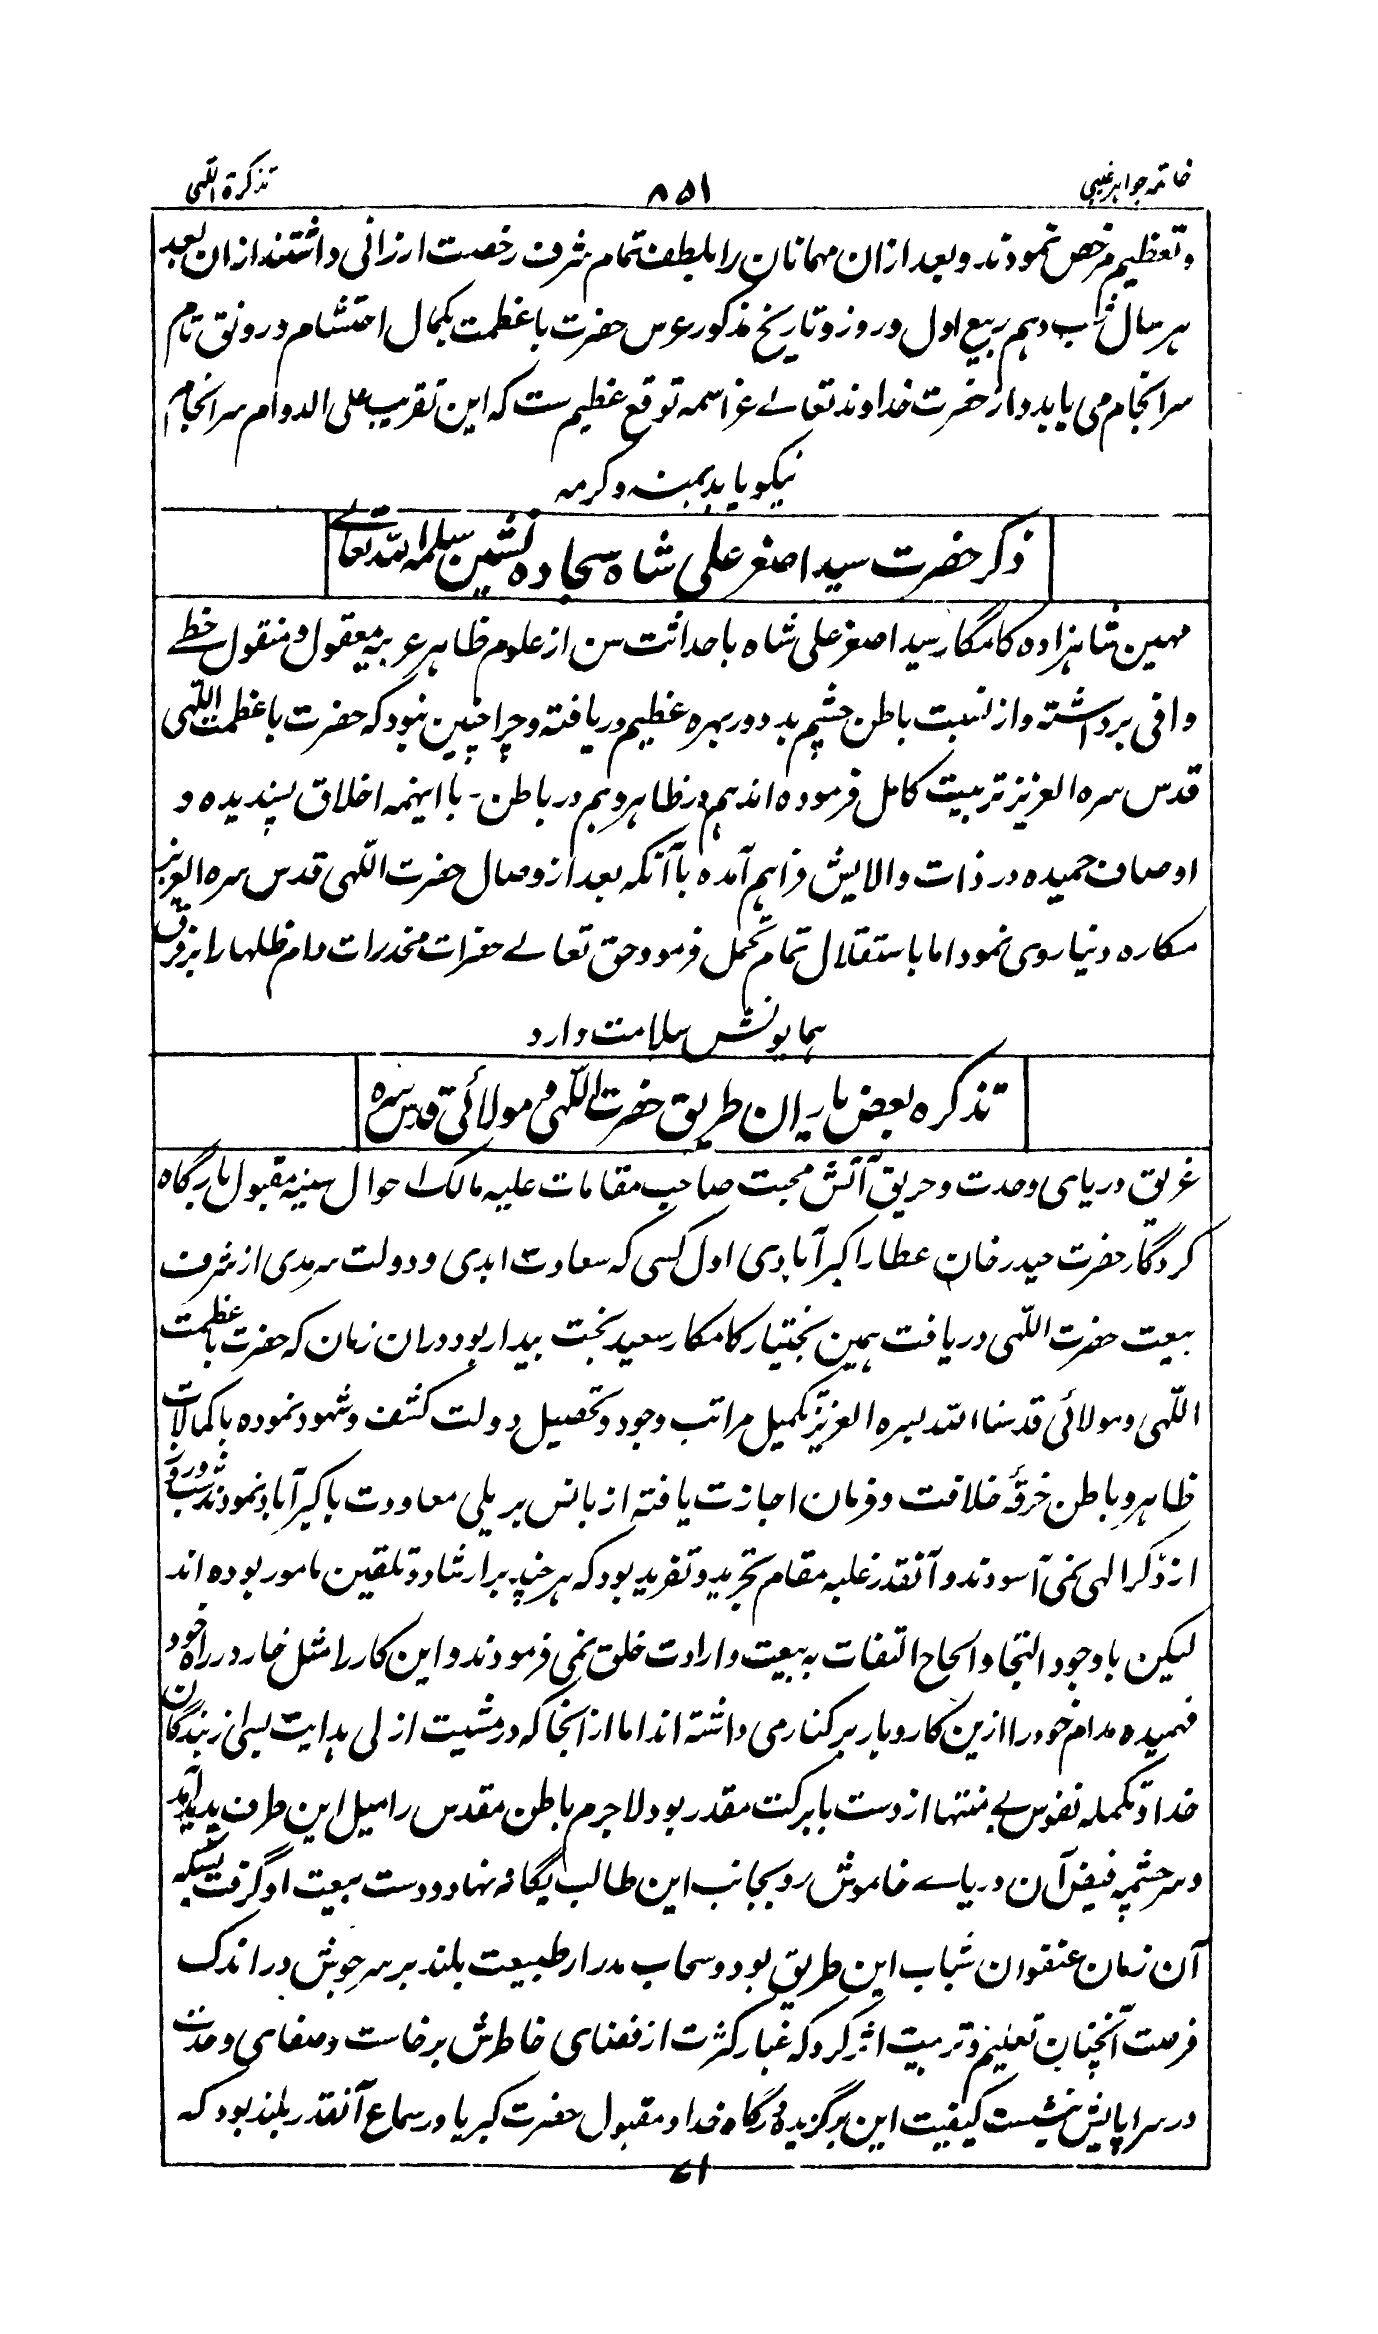 خاتمه جواهر غیبی
۸۵۱
تذکرة اللّهی
وتعظیم مرخص نمودند و بعد ازان مهمانان را بلطف تمام شرف رخصت ارزانی داشتند ازان بعد
هر سال شب دهم ربیع اول و روز و تاریخ مذکور عرس حضرت با عظمت بکمال احتشام و رونق تام
سرانجام می یابد و از حضرت خداوند تعالے عز اسمه توقع عظیم ست که این تقریب علی الدوام سرانجام
نیکو یابد بمنه و کرمه
ذکر حضرت سید اصغر علی شاه سجاده نشین سلمه الله تعالے
مهین شاهزاده کامگار سید اصغر علی شاه با حداثت سن از علوم ظاهر عربیه معقول و منقول خطے
وافی برداشته و از نسبت باطن چشم بد دور بهره عظیم دریافته و چرا چنین نبود که حضرت با عظمت اللّهی
قدس سره العزیز تربیت کامل فرموده اند هم در ظاهر و هم در باطن - با اینهمه اخلاق پسندیده و
اوصاف حمیده در ذات والایش فراهم آمده با آنکه بعد از وصال حضرت اللّهی قدس سره العزیز
مکاره دنیا روی نمود اما باستقلال تمام تحمل فرمود حق تعالے حضرات مخدرات دام ظلها را بر فرق
همایونش سلامت دارد
تذکره بعض یاران طریق حضرت اللّهی و مولائی قدس سره
غریق دریای وحدت و حریق آتش محبت صاحب مقامات علیه مالک احوال سنیه مقبول بارگاه
کردگار حضرت حیدر خان عطار اکبرآبادی اول کسی که سعادت ابدی و دولت سرمدی از شرف
بیعت حضرت اللّهی دریافت همین بختیار کامگار سعید بخت بیدار بود دران زمان که حضرت با عظمت
اللّهی و مولائی قدسنا الله بسره العزیز تکمیل مراتب وجود و تحصیل دولت کشف و شهود نموده با کمالات
ظاهر و باطن خرقۂ خلافت و فرمان اجازت یافته از بانس بریلی معاودت باکبرآباد نمودند شب و روز
از ذکر الهی نمی آسودند و آنقدر غلبه مقام تجرید و تفرید بود که هر چند بر ارشاد و تلقین مامور بوده اند
لیکن با وجود التجا و الحاح التفات به بیعت و ارادت خلق نمی فرمودند و این کار را مثل خار در راه خود
فهمیده مدام خود را ازین کاروبار بر کنار می داشته اند اما از انجا که در مشیت ازلی هدایت بسی از بندگان
خدا و تکمله نفوس بے منتها از دست با برکت مقدر بود لاجرم باطن مقدس را میل این طرف پدید آمد
و سرچشمه فیض آن دریاے خاموش رو بجانب این طالب یگانه نهاد و دست بیعت او گرفت بسکه
آن زمان عنفوان شباب این طریق بود و سحاب مدرار طبیعت بلند بر سر جوش در اندک
فرصت آنچنان تعلیم و تربیت اثر کرد که غبار کثرت از فضای خاطرش برخاست و صفای وحدت
در سراپایش بنشست کیفیت این برگزیده درگاه خدا و مقبول حضرت کبریا در سماع آنقدر بلند بود که